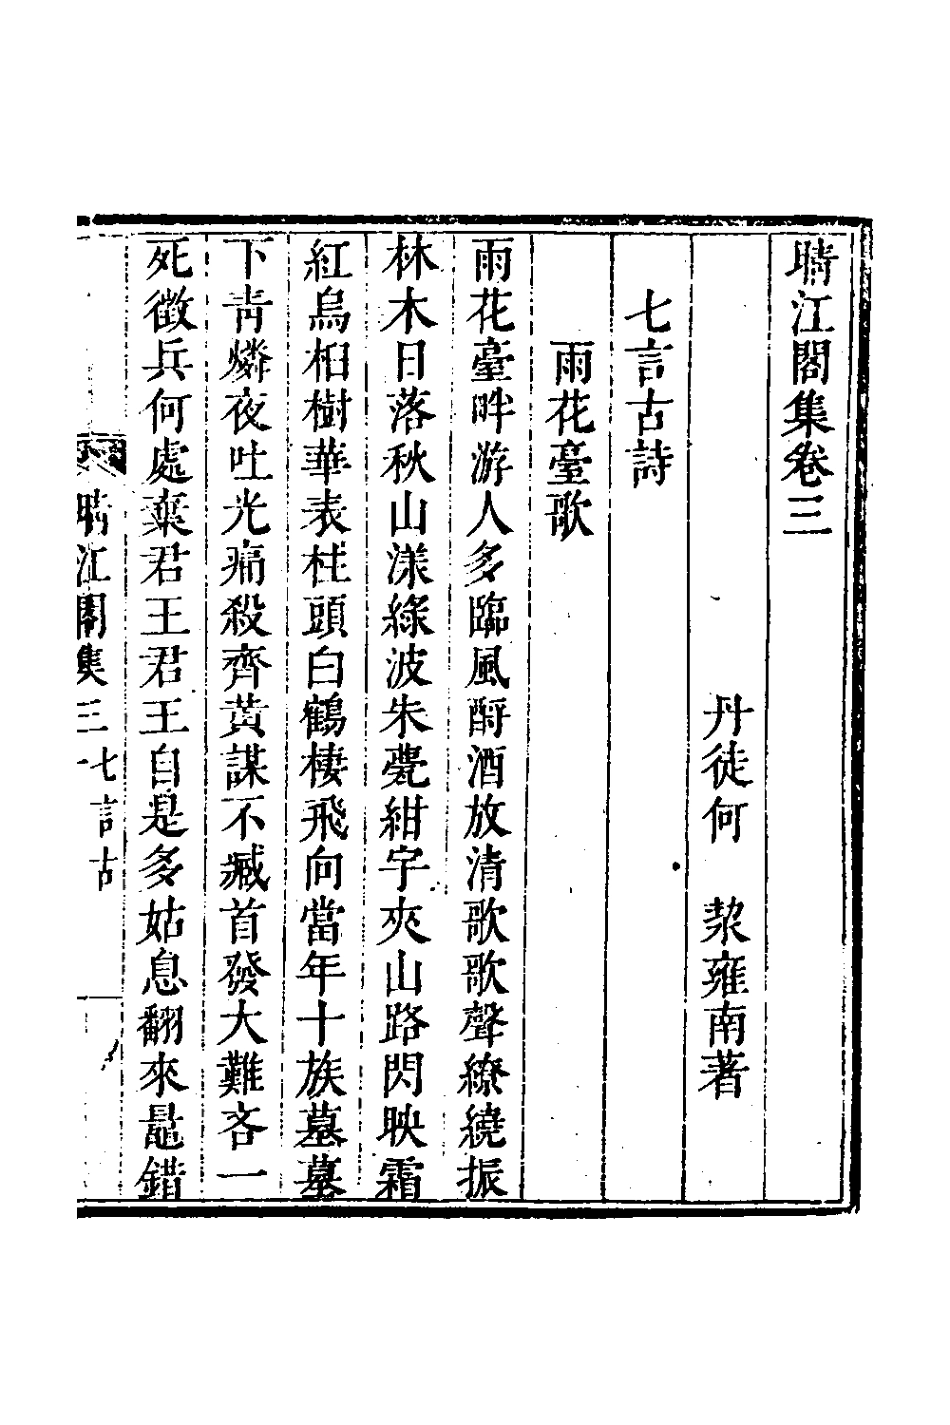 晴江閣集卷三
丹徒何　絜雍南著
七言古詩
雨花臺歌
雨花臺畔游人多臨風酹酒放清歌歌聲繚繞振
林木日落秋山漾綠波朱甍紺宇夾山路閃映霜
紅烏桕樹華表柱頭白鶴棲飛向當年十族墓墓
下青燐夜吐光痛殺齊黃謀不臧首發大難吝一
死徵兵何處棄君王君王自是多姑息翻來鼂錯
晴江閣集三　七言古